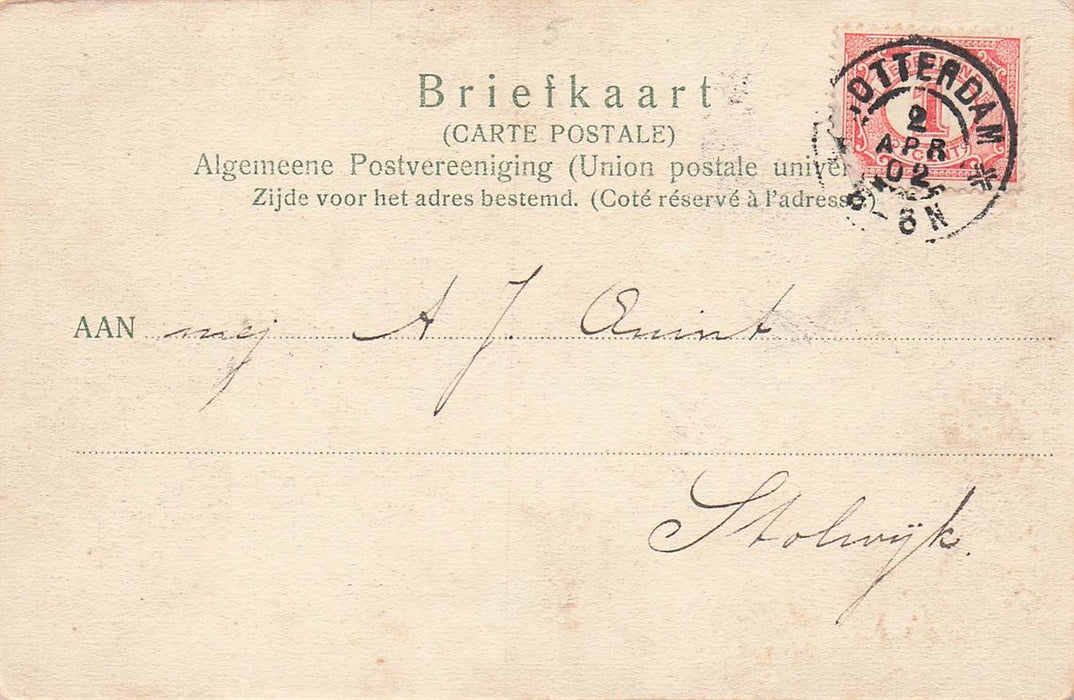 Briefkaart
(CARTE POSTALE)
Algemeene Postvereeniging (Union postale univer
Zijde voor het adres bestemd. (Coté réservé à l'adresse.)
OTTERDAM
2
APR
02
8N
1
CENT
AAN mej A J. Quint
Stolwijk.